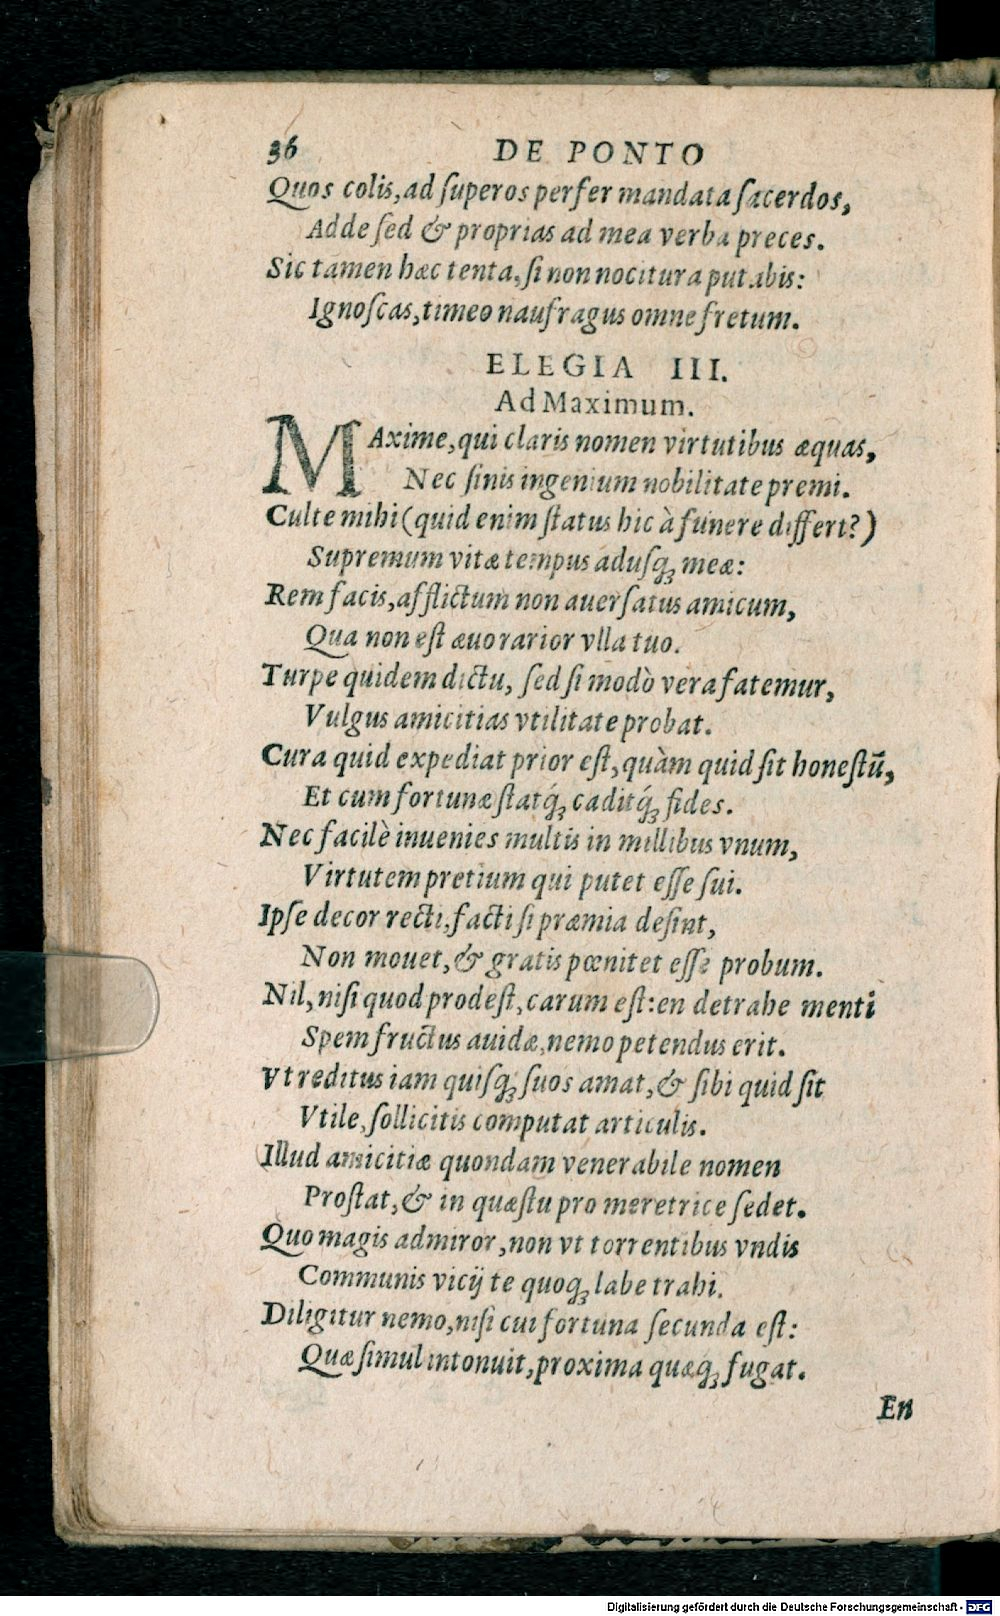 36 DE PONTO
Quos colis, ad ſuperos perfer mandata ſacerdos,
Adde ſed & proprias ad mea verba preces.
Sic tamen hæc tenta, ſi non nocitura putabis:
Ignoſcas, timeo naufragus omne fretum.
ELEGIA III.
Ad Maximum.
MAxime, qui claris nomen virtutibus æquas,
Nec ſinis ingenium nobilitate premi.
Culte mihi (quid enim ſtatus hic à funere differt?)
Supremum vitæ tempus aduſq; meæ:
Rem facis, afflictum non auerſatus amicum,
Qua non eſt æuo rarior vlla tuo.
Turpe quidem dictu, ſed ſi modò vera fatemur,
Vulgus amicitias vtilitate probat.
Cura quid expediat prior eſt, quàm quid ſit honeſtū,
Et cum fortuna ſtatq́; caditq́; fides.
Nec facilè inuenies multis in millibus vnum,
Virtutem pretium qui putet eſſe ſui.
Ipſe decor recti, facti ſi præmia deſint,
Non mouet, & gratis pœnitet eſſe probum.
Nil, niſi quod prodeſt, carum eſt: en detrahe menti
Spem fructus auidæ, nemo petendus erit.
Vt reditus iam quiſq; ſuos amat, & ſibi quid ſit
Vtile, ſollicitis computat articulis.
Illud amicitiæ quondam venerabile nomen
Proſtat, & in quæſtu pro meretrice ſedet.
Quo magis admiror, non vt torrentibus vndis
Communis vicij te quoq; labe trahi.
Diligitur nemo, niſi cui fortuna ſecunda eſt:
Quæ ſimul intonuit, proxima quæq; fugat.
En
Digitalisierung gefördert durch die Deutsche Forschungsgemeinschaft - DFG